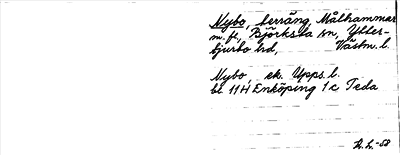 Nybo, terräng, Målhammar
m. fl., Björksta sn, Ytter-
tjurbo hd, Västm. l.
Nybo, ek. Upps. l.
bl. 11H Enköping 1c Teda